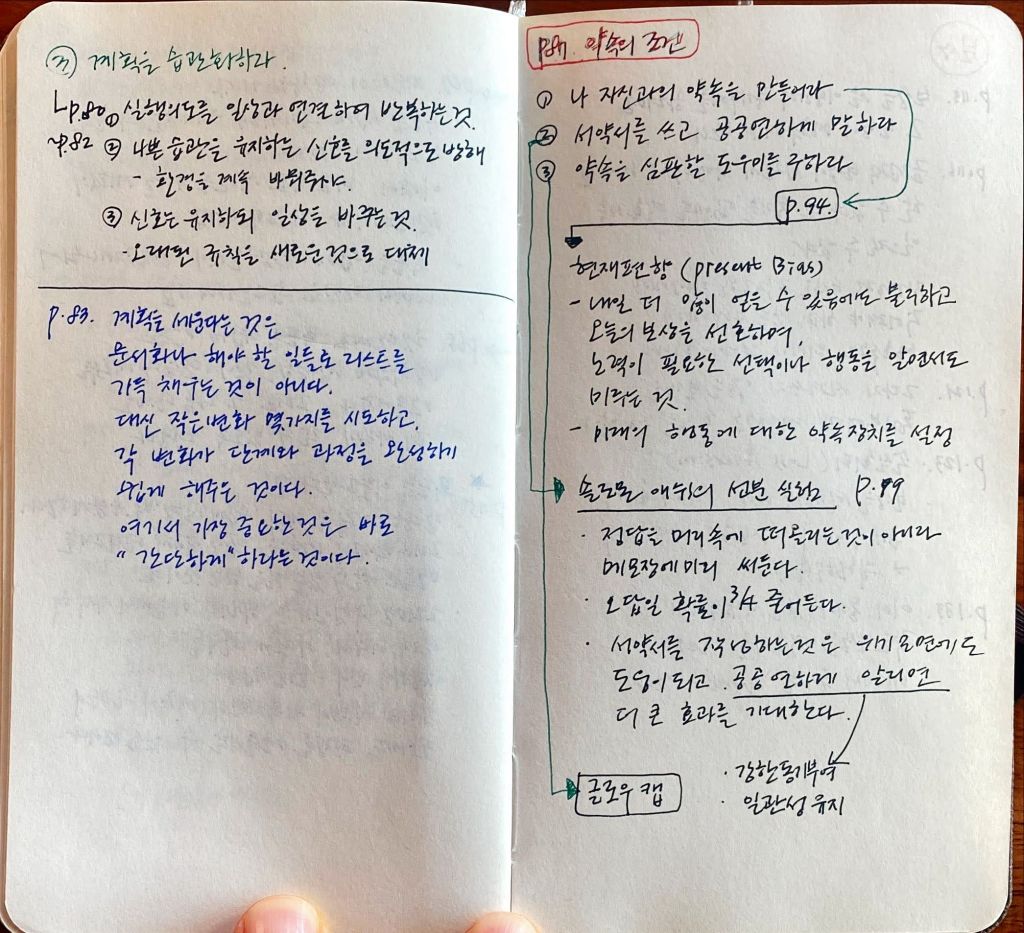 ③ 계획을 습관화하라.
↳p.80 ① 실행의도를 일상과 연결하여 반복하는 것.
p.82 ② 나쁜 습관을 유지하는 신호를 의도적으로 방해
- 환경을 계속 바꿔주자.
③ 신호는 유지하되 일상을 바꾸는 것.
- 오래된 규칙을 새로운 것으로 대체
p.83. 계획을 세운다는 것은
문서화나 해야 할 일들로 리스트를
가득 채우는 것이 아니다.
대신 작은 변화 몇가지를 시도하고,
각 변화가 단계와 과정을 완성하기
쉽게 해주는 것이다.
여기서 가장 중요한 것은 바로
"간단하게" 하라는 것이다.
p.87. 약속의 조건
① 나 자신과의 약속을 만들어라
② 서약서를 쓰고 공공연하게 말하라
③ 약속을 심판할 도우미를 구하라
p.94.
현재편향 (present Bias)
- 내일 더 많이 얻을 수 있음에도 불구하고
오늘의 보상을 선호하며,
노력이 필요한 선택이나 행동을 알면서도
미루는 것.
- 미래의 행동에 대한 약속장치를 설정
솔로몬 애쉬의 선분 실험 p.99
· 정답을 머리속에 떠올리는것이 아니라
메모장에 미리 써둔다.
· 오답일 확률이 3/4 줄어든다.
· 서약서를 작성하는것은 위기모면에도
도움이 되고 공공연하게 알리면
더 큰 효과를 기대한다.
· 강한동기부여
글로우 캡
· 일관성 유지